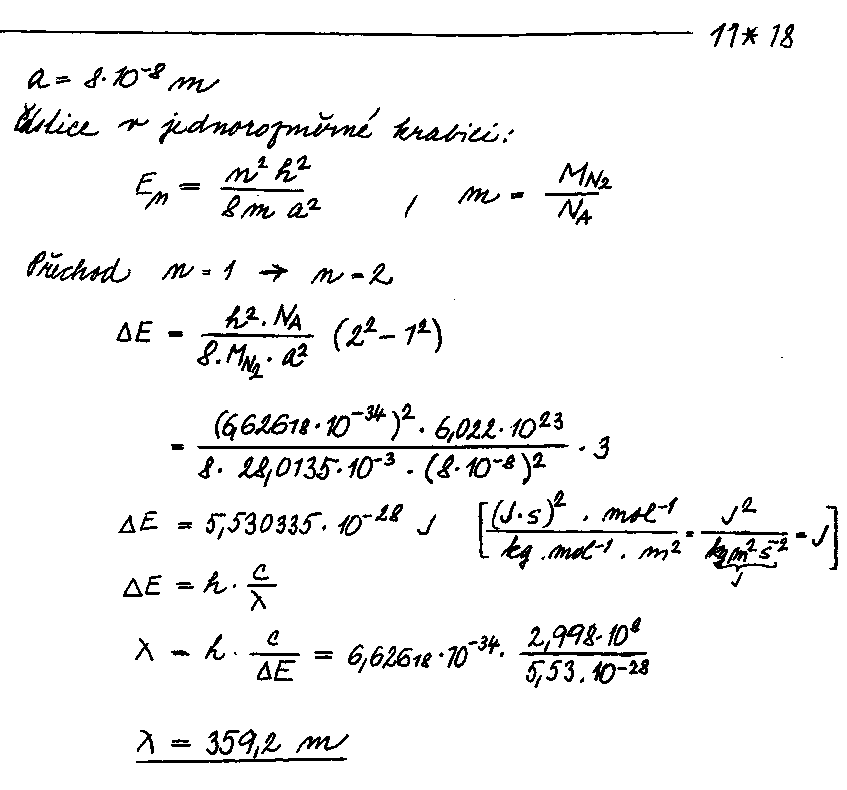 11* 18
a = 8·10⁻⁸ m
Částice v jednorozměrné krabici:
Eₙ = n² h² / 8 m a² , m = M_N₂ / N_A
Přechod n = 1 → n = 2
ΔE = h². N_A / 8. M_N₂ . a² (2² – 1²)
= (6,62618·10⁻³⁴)² · 6,022·10²³ / 8 · 28,0135·10⁻³ · (8·10⁻⁸)² · 3
ΔE = 5,530335·10⁻²⁸ J [(J·s)² . mol⁻¹ / kg . mol⁻¹ . m² = J² / kg m² s⁻² = J]
J
ΔE = h · c/λ
λ = h · c/ΔE = 6,62618·10⁻³⁴ · 2,998·10⁸ / 5,53.10⁻²⁸
λ = 359,2 m